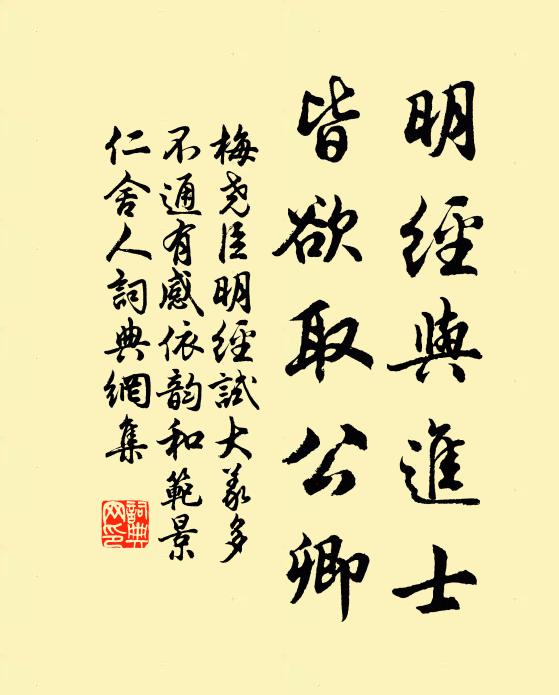 明經與進士
皆欲取公卿
梅堯臣明經試大義多
不通有感依韵和範景
仁舍人詞典網集
詞典
网印